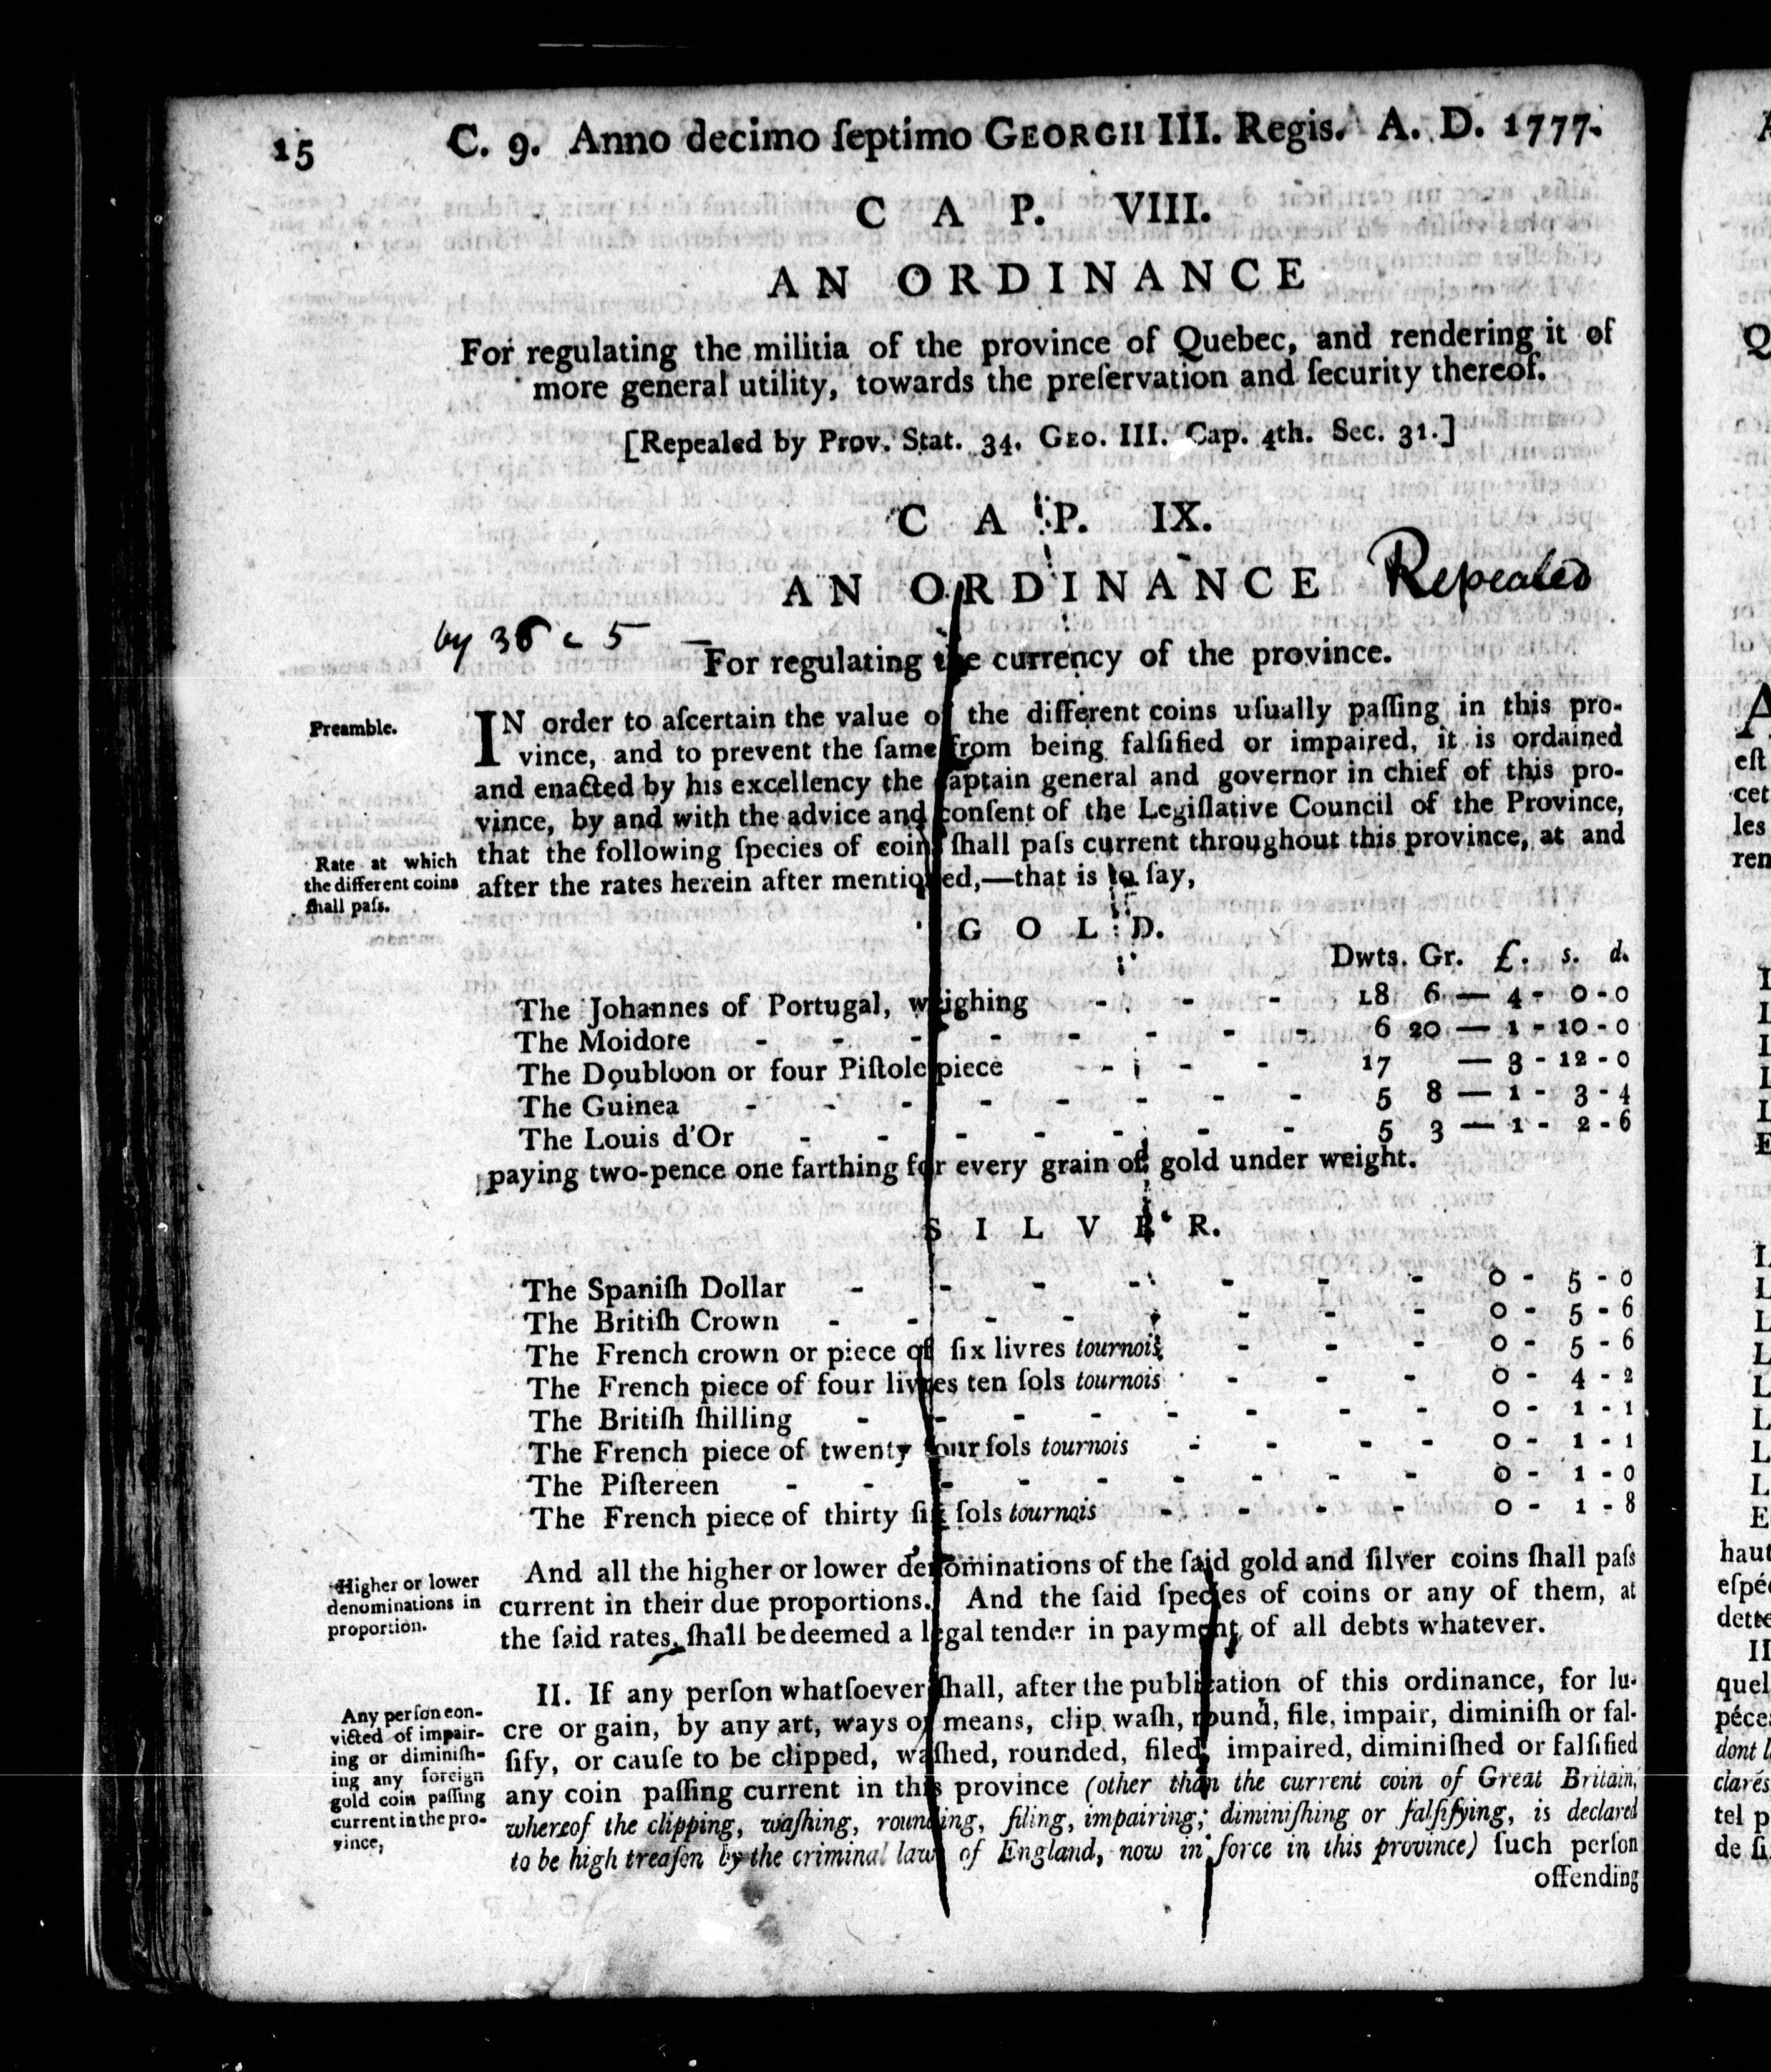 15 C. 9. Anno decimo ſeptimo GEORGII III. Regis. A. D. 1777.
C A P. VIII.
AN ORDINANCE
For regulating the militia of the province of Quebec, and rendering it of
more general utility, towards the preſervation and ſecurity thereof.
[Repealed by Prov. Stat. 34. GEO. III. Cap. 4th. Sec. 31.]
C A P. IX.
AN ORDINANCE Repealed
by 36 c 5 —
For regulating the currency of the province.
Preamble.
IN order to aſcertain the value of the different coins uſually paſſing in this pro-
vince, and to prevent the ſame from being falſified or impaired, it is ordained
and enacted by his excellency the captain general and governor in chief of this pro-
vince, by and with the advice and conſent of the Legiſlative Council of the Province,
that the following ſpecies of coins ſhall paſs current throughout this province, at and
after the rates herein after mentioned,—that is to ſay,
Rate at which
the different coins
ſhall paſs.
G O L D.
Dwts. Gr. £. s. d.
The Johannes of Portugal, weighing - - - 18 6 — 4 - 0 - 0
The Moidore - - - - - - - - 6 20 — 1 - 10 - 0
The Doubloon or four Piſtole piece - - - 17 — 3 - 12 - 0
The Guinea - - - - - - - - 5 8 — 1 - 3 - 4
The Louis d'Or - - - - - - - 5 3 — 1 - 2 - 6
paying two-pence one farthing for every grain of gold under weight.
S I L V E R.
The Spaniſh Dollar - - - - - - - 0 - 5 - 0
The Britiſh Crown - - - - - - - - 0 - 5 - 6
The French crown or piece of ſix livres tournois - - - 0 - 5 - 6
The French piece of four livres ten ſols tournois - - - 0 - 4 - 2
The Britiſh ſhilling - - - - - - - - 0 - 1 - 1
The French piece of twenty four ſols tournois - - - - 0 - 1 - 1
The Piſtereen - - - - - - - - - 0 - 1 - 0
The French piece of thirty ſix ſols tournois - - - - 0 - 1 - 8
And all the higher or lower denominations of the ſaid gold and ſilver coins ſhall paſs
current in their due proportions. And the ſaid ſpecies of coins or any of them, at
the ſaid rates, ſhall be deemed a legal tender in payment of all debts whatever.
Higher or lower
denominations in
proportion.
II. If any perſon whatſoever ſhall, after the publication of this ordinance, for lu-
cre or gain, by any art, ways or means, clip, waſh, round, file, impair, diminiſh or fal-
ſify, or cauſe to be clipped, waſhed, rounded, filed, impaired, diminiſhed or falſified
any coin paſſing current in this province (other than the current coin of Great Britain,
whereof the clipping, waſhing, rounding, filing, impairing, diminiſhing or falſifying, is declared
to be high treaſon by the criminal law of England, now in force in this province) ſuch perſon
offending
Any perſon con-
victed of impair-
ing or diminiſh-
ing any foreign
gold coin paſſing
current in the pro-
vince,
Q
A
eſt
cet
les
ren
haut
eſpé
dette
II
quel
péce
dont l
clarés
tel p
de ſi